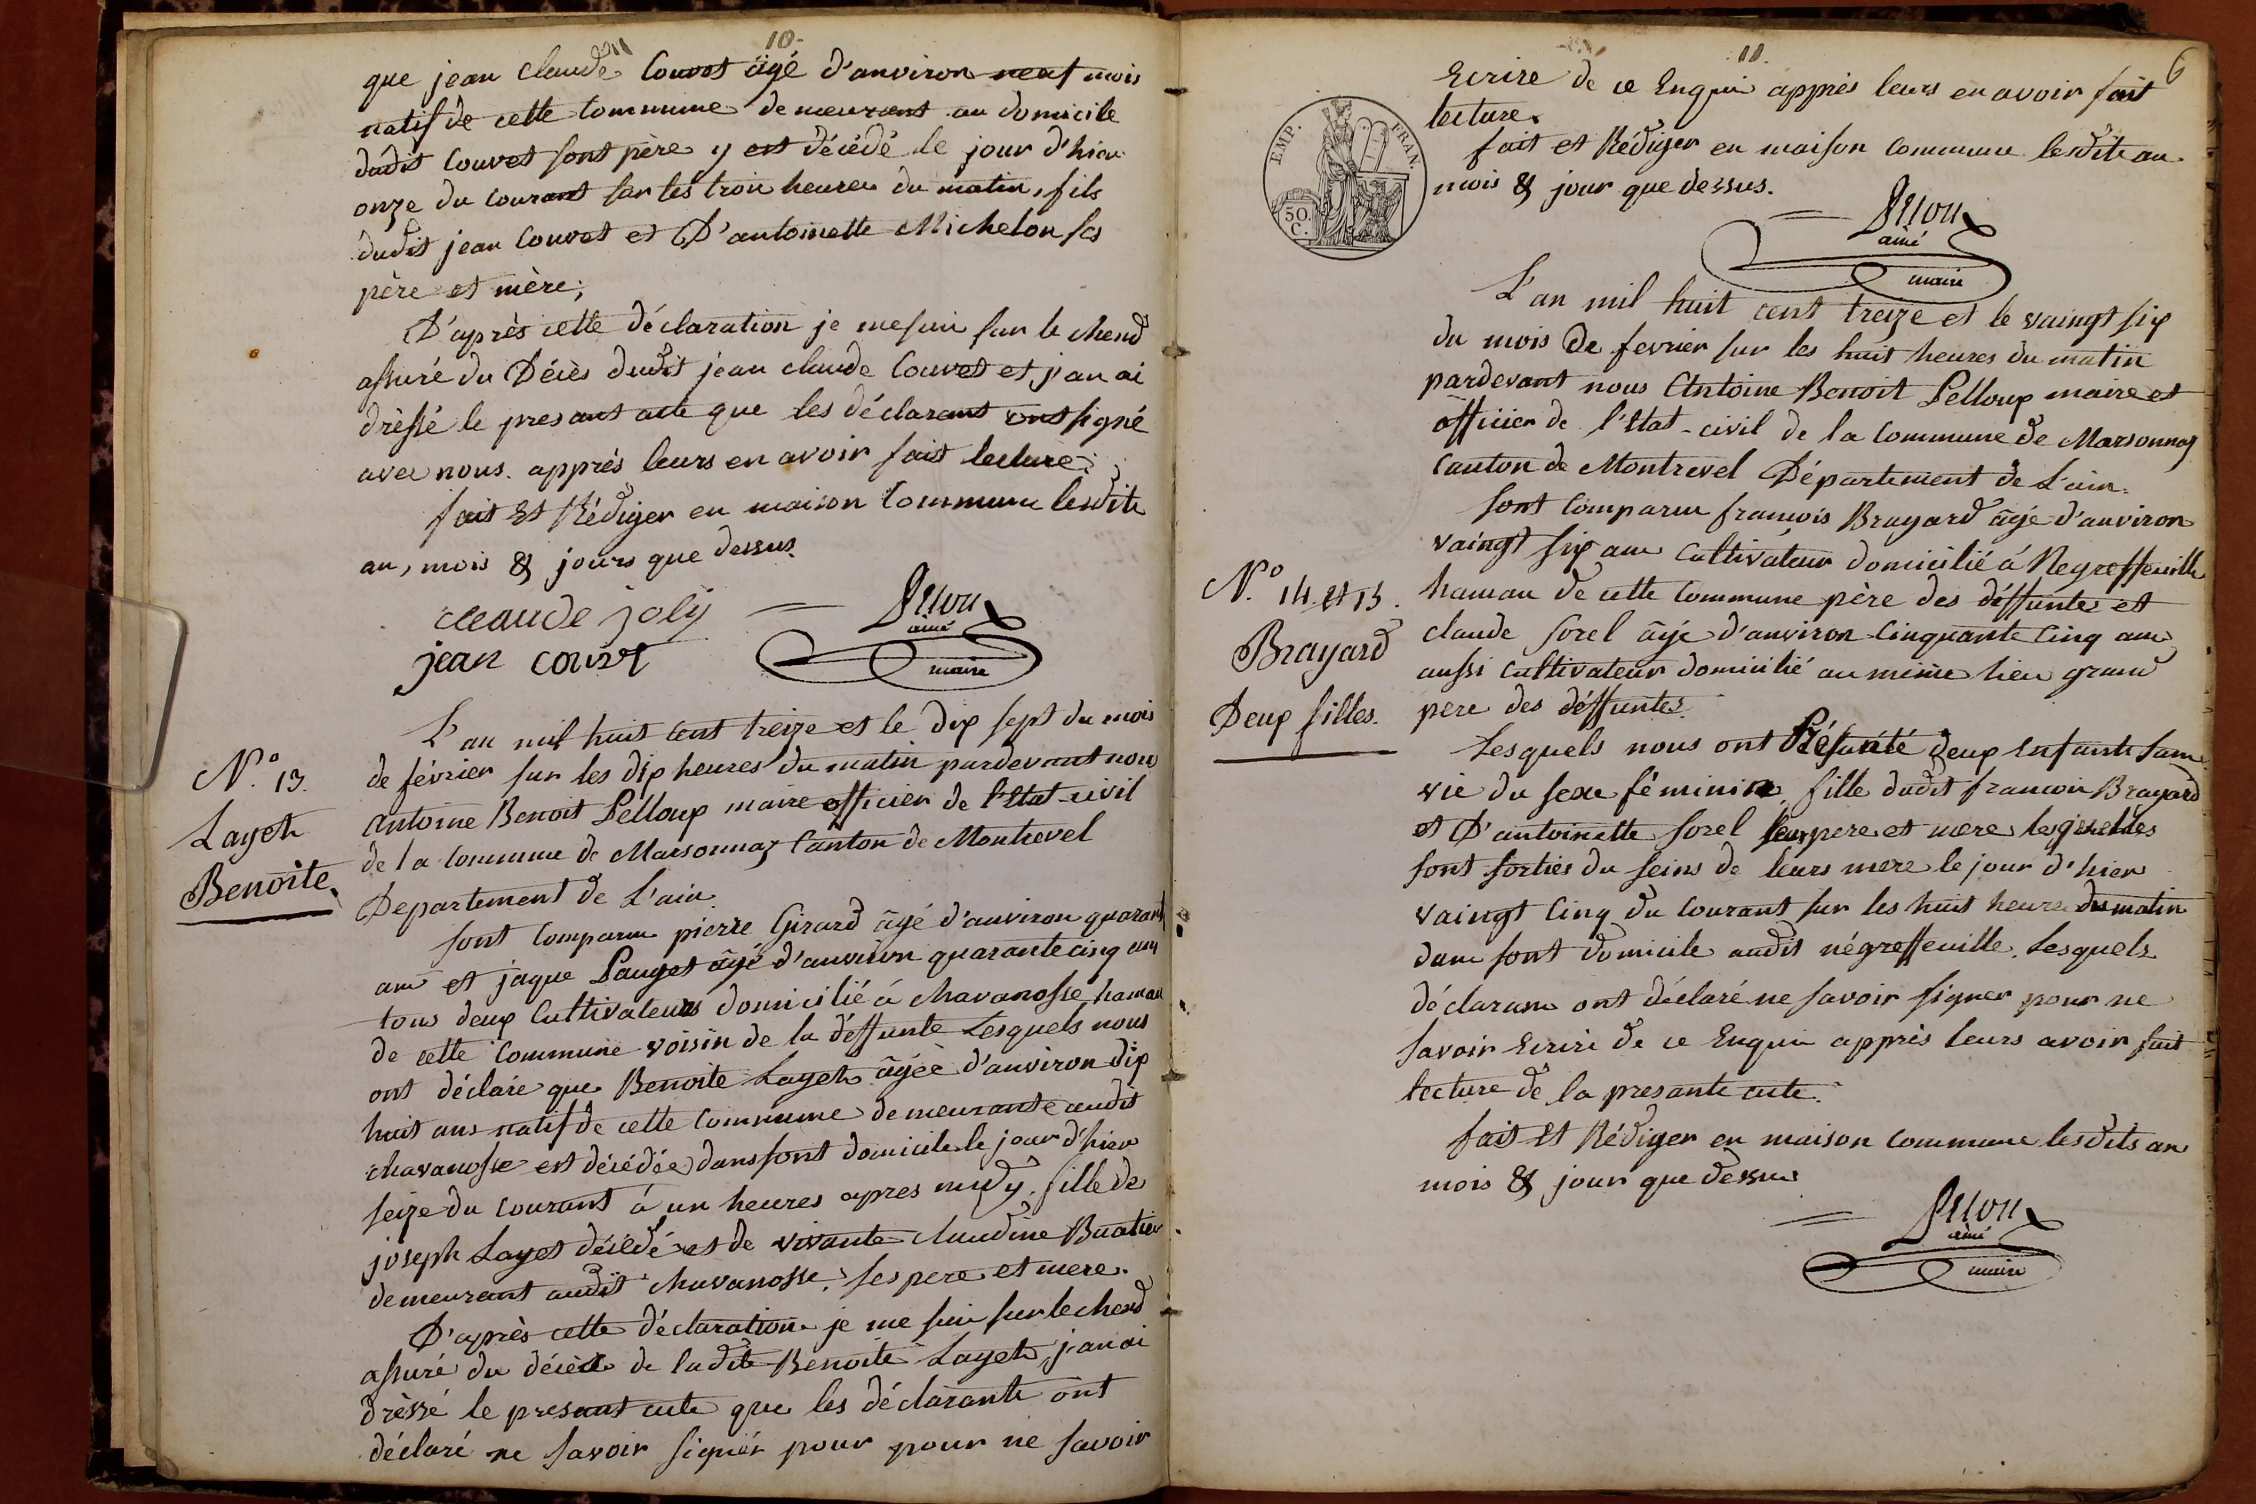 10.
que jean claude Couvet âgé d'anviron neuf mois
natif de cette Commune demeurant au domicile
dudit Couvet sont père y est décédé le jour d'hier
onze du courant sur les trois heures du matin, fils
dudit jean Couvet et D'antoinette Michelon ses
père et mère;
D'après cette déclaration je me suis sur le chend
assuré du Décès dudit jean claude Couvet et j'an ai
drèssé le presant acte que les déclarant ont signé
avec nous. apprès leurs en avoir fait lecture;
fait Et Rédiger en maison Commune lesdits
an, mois & jours que dessus.
claude joly
jean couvt
ainé
maire
N.° 13.
Layet
Benoite
L'an mil huit cent treize et le dix sept du mois
de février sur les dix heures du matin pardevant nous
antoine Benoit Pelloux maire officier de l'Etat-civil
de la Commune de Marsonnaz Canton de Montrevel
Departement de L'ain.
sont Comparu pierre Girard âgé d'anviron quarant
ans et jaque Pauget âgé d'anviron quarante cinq ans
tous deux Cultivateurs domicilié à chavanosse, hamau
de cette Commune voisin de la déffunte Lesquels nous
ont déclaré que Benoite Layet âgée d'anviron dix
huit ans natif de cette Commune demeurante audit
chavanosse est décédée dans sont domicile le jour d'hier
seize du courant à un heures apres midy, fille de
joseph Layet décédé et de vivante claudine Buatier
demeurant audit chavanosse, ses pere et mere.
D'après cette déclaration je me suis sur le chend
assuré du décès de ladite Benoite Layet, j'an ai
drèssé le presant acte que les déclarants ont
déclaré ne savoir signér pour pour ne savoir
11.
6
EMP. FRAN.
50. C.
Ecrire de ce Enquis apprès leurs en avoir fait
lecture.
fait et Rédiger en maison Commune lesdits an
mois & jour que dessus.
ainé
maire
L'an mil huit cent treize et le vaingt six
du mois de fevrier sur les huit heures du matin
pardevant nous Antoine Benoit Pelloux maire et
officier de l'Etat-civil de la Commune de Marsonnaz
Canton de Montrevel Département de L'ain.
N.° 14 et 15.
Brayard
Deux filles.
sont Comparu françois Brayard âgé d'anviron
vaingt six ans Cultivateur domicilié à Negreffeuille
hamau de cette Commune père des déffuntes et
claude Sorel âgé d'anviron Cinquante Cinq ans
aussi Cultivateur domicilié au même lieu grand
pere des déffuntes.
Lesquels nous ont Présanté deux Enfants sans
vie du sexe féminin fille dudit françois Brayard
et D'antoinette Sorel leurs pere et mere lesquelles
sont sorties du seins de leurs mere le jour d'hier
vaingt Cinq du Courant sur les huit heures du matin
dans sont domicile audit négreffeuille. Lesquels
déclarans ont déclaré ne savoir signer pour ne
savoir Ecrire de ce Enquis apprès leurs avoir fait
lecture de la presante acte.
fait Et Rédiger en maison Commune lesdits an
mois & jour que dessus
ainé
maire